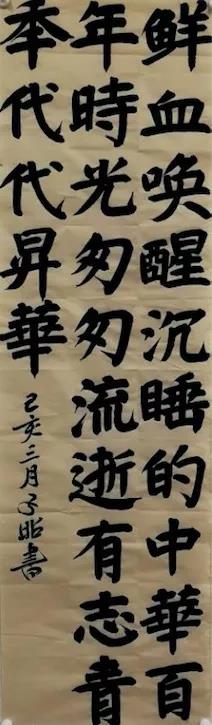 鲜血唤醒沉睡的中華百
年時光匆匆流逝有志青
秊代代昇華
己亥三月子昭書